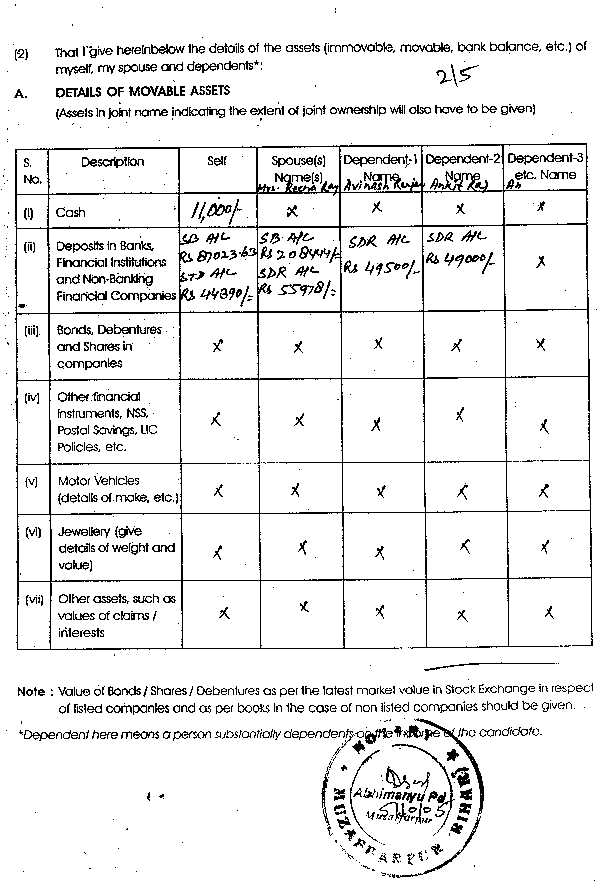 (2) That I give hereinbelow the details of the assets (immovable, movable, bank balance, etc.) of
myself, my spouse and dependents*:
2/5
A. DETAILS OF MOVABLE ASSETS
(Assets in joint name indicating the extent of joint ownership will also have to be given)
S. No. Description Self Spouse(s) Name(s) Dependent-1 Name Dependent-2 Name Dependent-3 etc. Name
Mrs. Avinash Ankit Raj
(i) Cash 11,000/- x x x x
(ii) Deposits in Banks, SB A/C SB A/C SDR A/C SDR A/C
Financial Institutions Rs 87023.63 Rs 208444/- Rs 49500/- Rs 49000/- x
and Non-Banking STD A/C SDR A/C
Financial Companies Rs 44390/- Rs 55978/-
(iii) Bonds, Debentures
and Shares in x x x x x
companies
(iv) Other financial
Instruments, NSS,
Postal Savings, LIC x x x x x
Policies, etc.
(v) Motor Vehicles
(details of make, etc.) x x x x x
(vi) Jewellery (give
details of weight and x x x x x
value)
(vii) Other assets, such as
values of claims / x x x x x
interests
Note : Value of Bonds / Shares / Debentures as per the latest market value in Stock Exchange in respect
of listed companies and as per books in the case of non listed companies should be given.
*Dependent here means a person substantially dependents on the income of the candidate.
NOTARY
Abhimanyu Pd.
Muzaffarpur
MUZAFFARPUR (BIHAR)